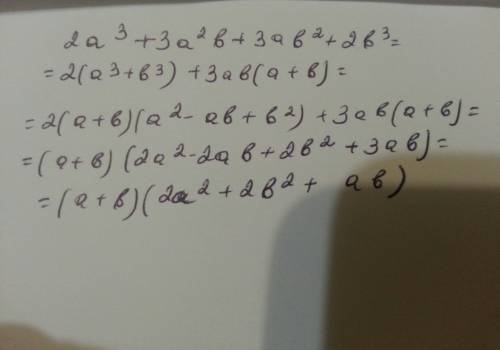 2a³+3a²b+3ab²+2b³=
=2(a³+b³)+3ab(a+b)=
=2(a+b)(a²-ab+b²)+3ab(a+b)=
=(a+b)(2a²-2ab+2b²+3ab)=
=(a+b)(2a²+2b²+ ab)